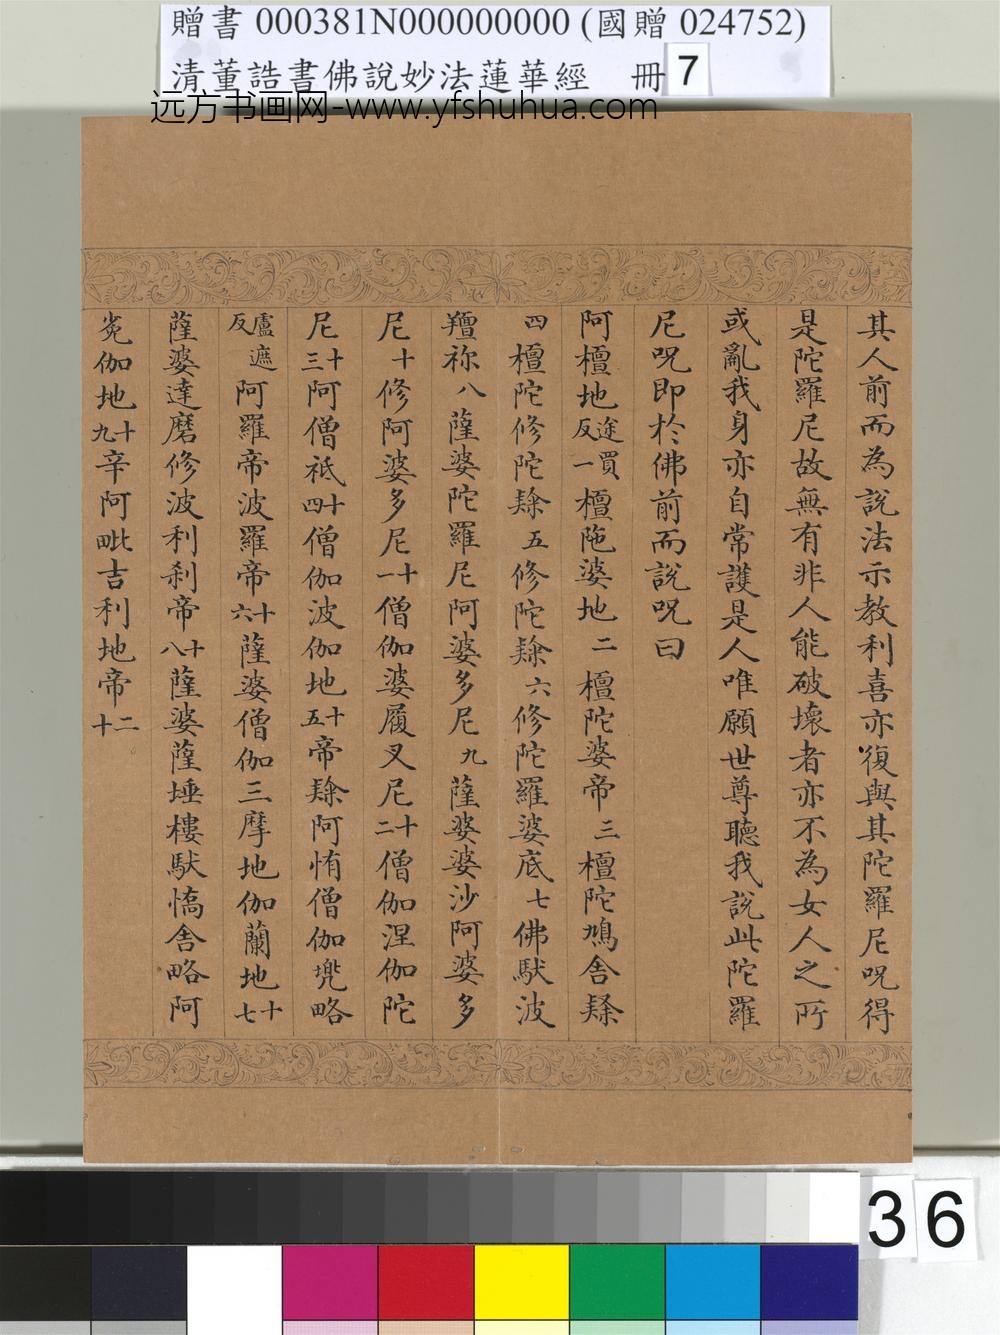 贈書 000381N000000000 (國贈 024752)
清董誥書佛說妙法蓮華經 冊 7
远方书画网-www.yfshuhua.com
其人前而為說法示教利喜亦復與其陀羅尼呪得
是陀羅尼故無有非人能破壞者亦不為女人之所
或亂我身亦自常護是人唯願世尊聽我說此陀羅
尼呪即於佛前而說呪曰
阿檀地途買反一檀陁婆地二檀陀婆帝三檀陀鳩舍隸
四檀陀修陀隸五修陀隸六修陀羅婆底七佛馱波
羶祢八薩婆陀羅尼阿婆多尼九薩婆婆沙阿婆多
尼十修阿婆多尼十一僧伽婆履叉尼十二僧伽涅伽陀
尼十三阿僧祇十四僧伽波伽地十五帝隸阿惰僧伽兜略
盧遮反阿羅帝波羅帝十六薩婆僧伽三摩地伽蘭地十七
薩婆達磨修波利剎帝十八薩婆薩埵樓馱憍舍略阿
㝹伽地十九辛阿毗吉利地帝二十
36